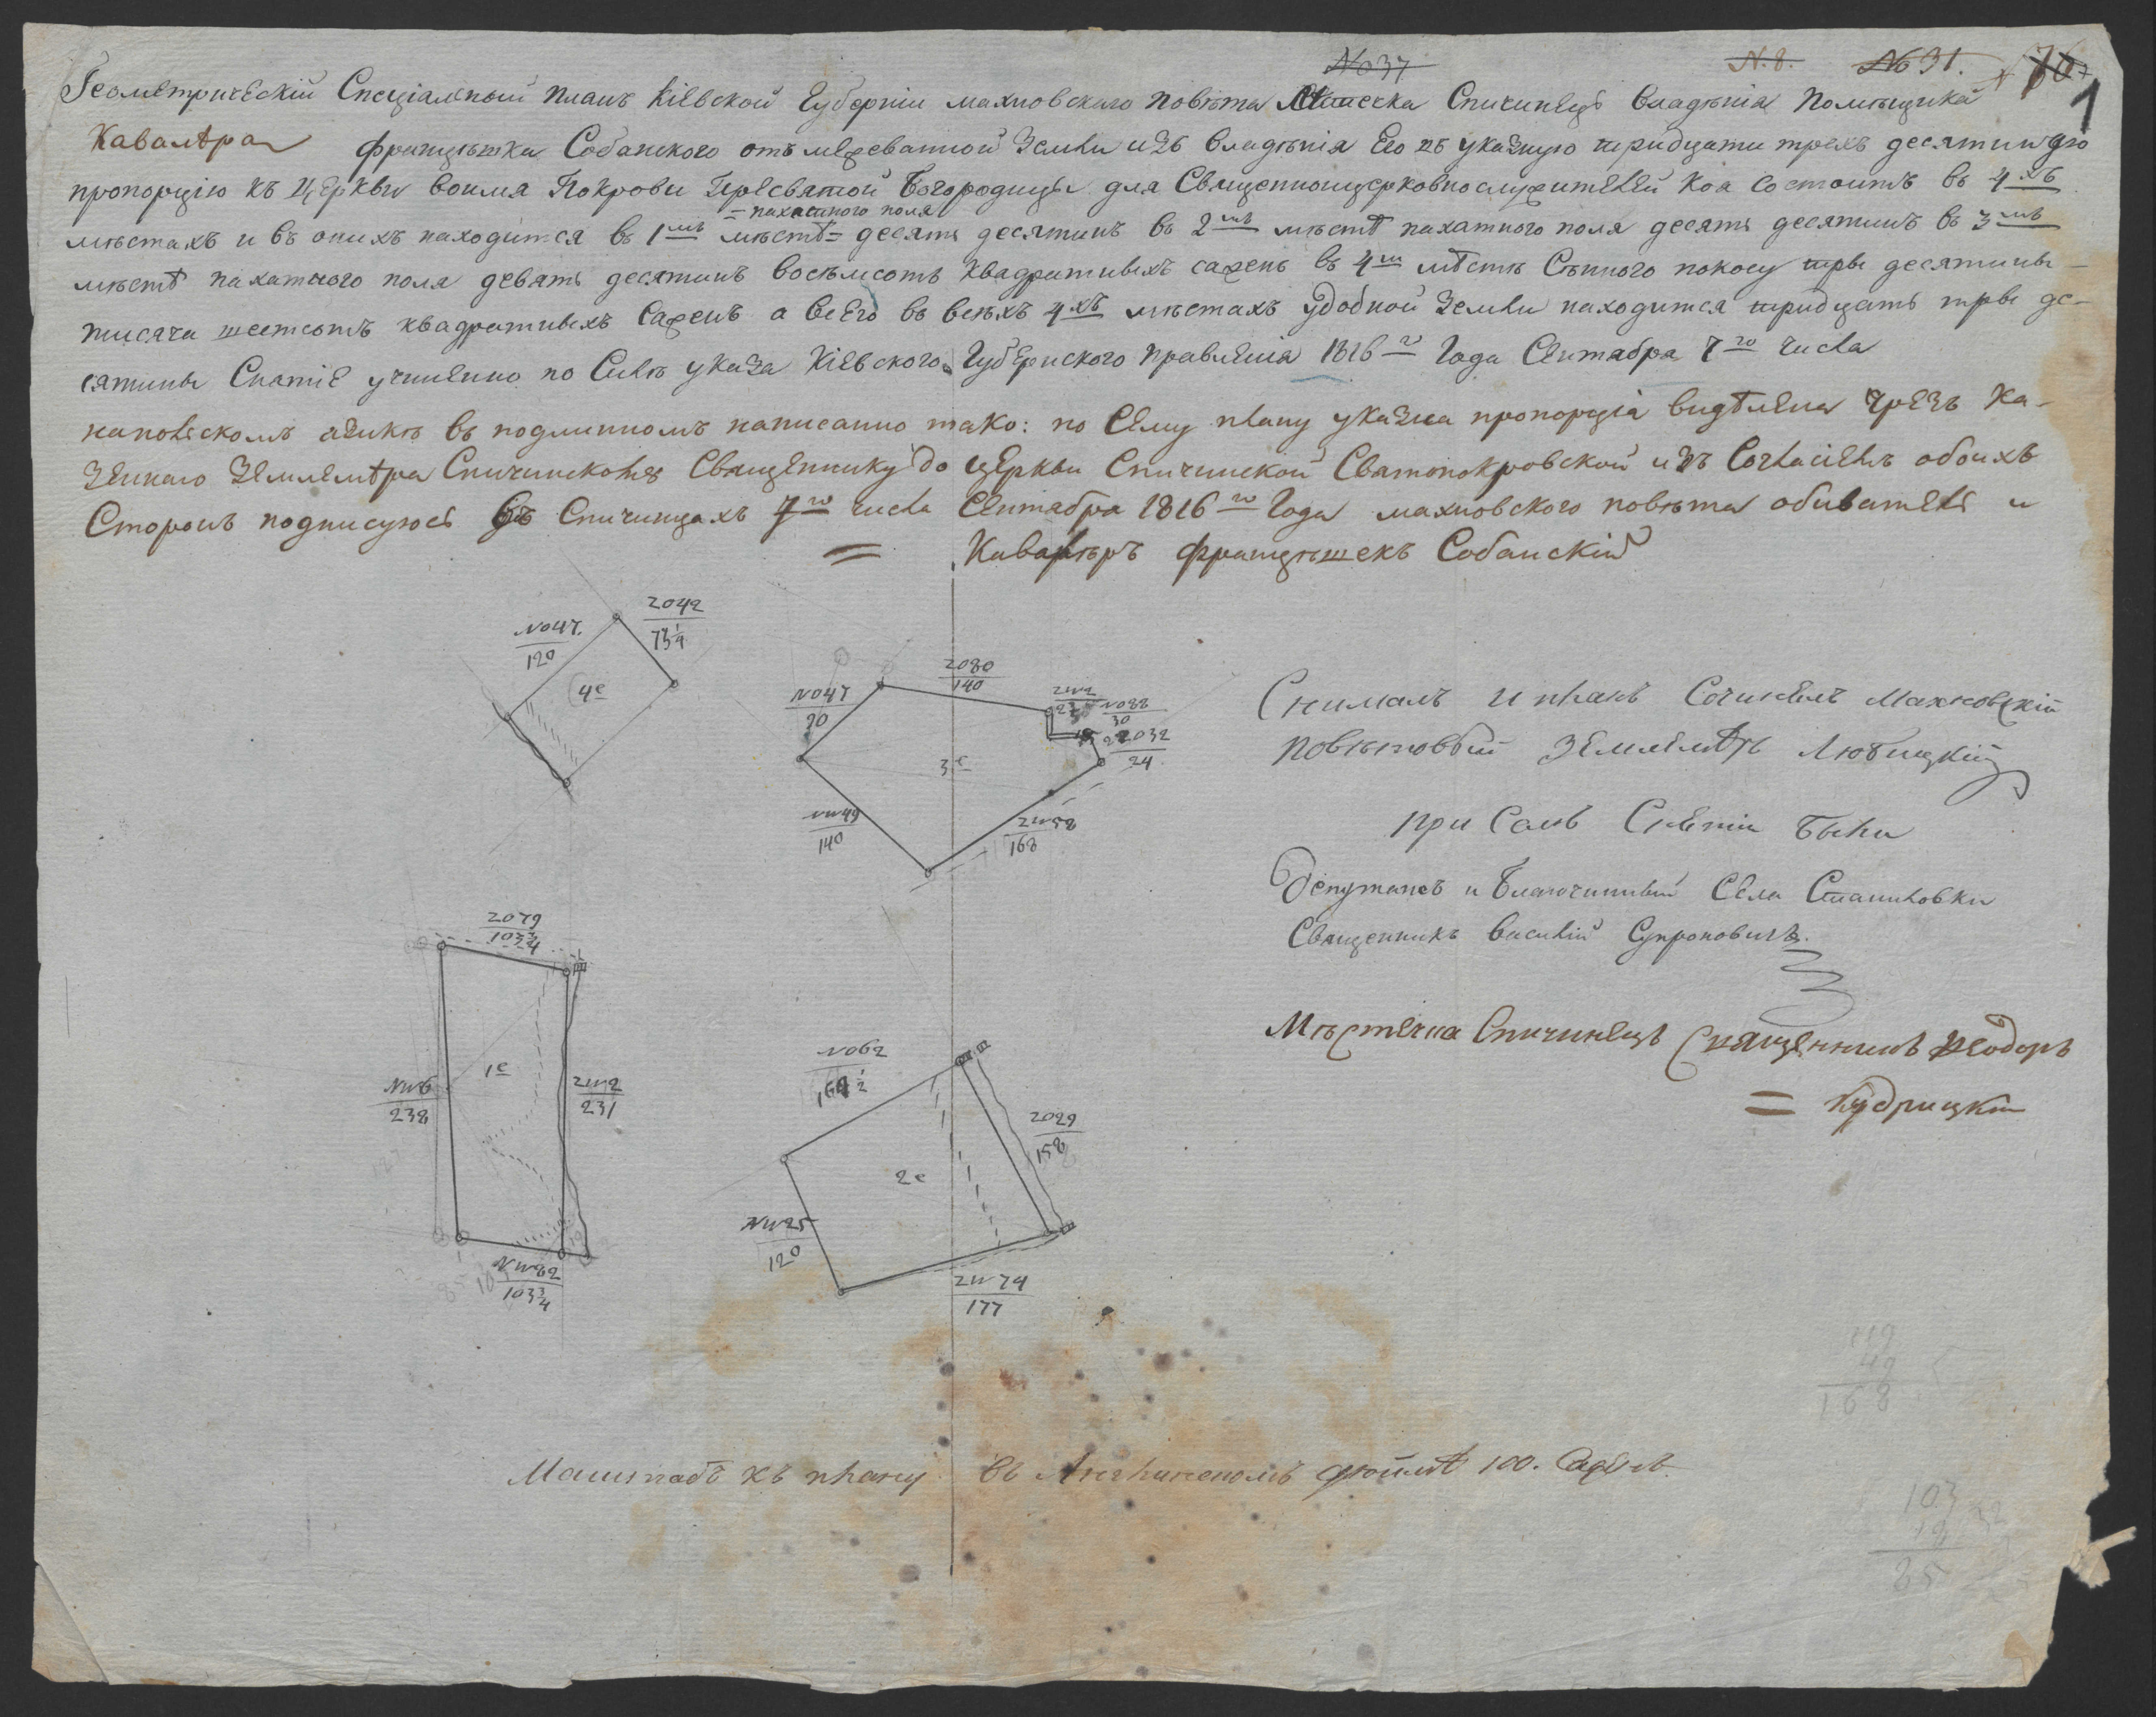 № 37 N. 8. № 31. 1
Геометрический Специальный планъ Кіевской Губерніи махновского повѣта Спичинецъ владѣнія Помѣщика
Кавалѣра францѣшка Собанского отъ межеванной Земли изъ владѣнія Его въ указную тридцати трехъ десятинную
пропорцію къ Церкви воимя Покрови Пресвятой Богородицы для Священноцерковнослужителей Коя состоитъ въ 4хъ
= пахатного поля
мѣстахъ и въ онихъ находится въ 1мъ мѣстѣ = десять десятинъ въ 2мъ мѣстѣ пахатного поля десять десятинъ въ 3мъ
мѣстѣ пахатного поля девять десятинъ восѣмсотъ квадратныхъ сажень въ 4м мѣстѣ Сѣнного покосу три десятины
тисяча шестьсотъ квадратныхъ Саженъ а всего въ всѣхъ 4хъ мѣстахъ удобной Земли находится тридцать три де-
сятины Снятіе учинено по Силѣ указа Кіевского Губернского правленія 1816го Года Сентабра 7го числа
на польскомъ язикѣ въ подлинномъ написанно тако: по Сему плану указна пропорція видѣлена Чрезъ Ка-
зенного Землемѣра Священнику до церкви Спичинской Святопокровской изъ Согласіемъ обоихъ
Сторонъ подписуюсь въ Спичинцахъ 7го числа Сентабра 1816го Года махновского повѣта обиватель и
= Кавалѣръ францѣшекъ Собанскій
№47
120
2042
73 1/4
4е
№47
90
2080
140
№88
30
2032
24
3е
NW49
140
2W58
168
Снималъ и планъ Сочинялъ Махновскій
повѣтовый Землемѣръ Любицкій
при Семъ Снятіи Были
Депутатъ и Благочинный Села
Священникъ Василій Супроновичъ.
Мѣстечка Спичинецъ Священникъ Ѳеодоръ
= Кудрицкій
2079
103 3/4
1е
NW6
238
2W2
231
NW82
103 3/4
№62
2029
158
2е
NW25
120
2W74
177
119
49
168
Масштабъ къ плану въ Англинскомъ дюймѣ 100. Саженъ.
103
18
85